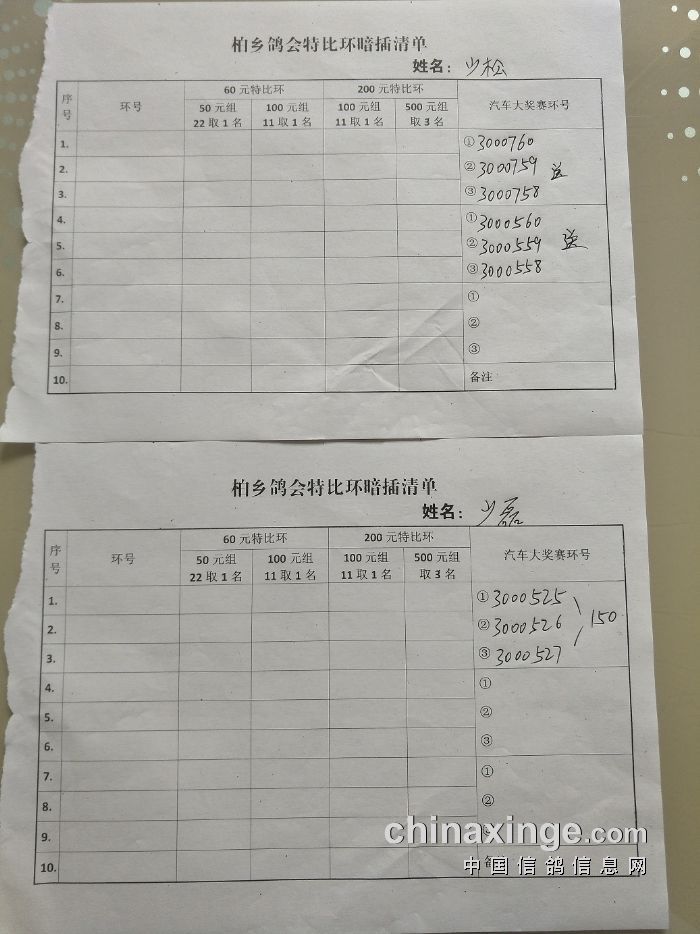 柏乡鸽会特比环暗插清单
姓名：少松
序号 环号 60 元特比环 200 元特比环 汽车大奖赛环号
50 元组 100 元组 100 元组 500 元组
22 取 1 名 11 取 1 名 11 取 1 名 取 3 名
1. ①3000760
2. ②3000759 送
3. ③3000758
4. ①3000560
5. ②3000559 送
6. ③3000558
7. ①
8. ②
9. ③
10. 备注
柏乡鸽会特比环暗插清单
姓名：少磊
序号 环号 60 元特比环 200 元特比环 汽车大奖赛环号
50 元组 100 元组 100 元组 500 元组
22 取 1 名 11 取 1 名 11 取 1 名 取 3 名
1. ①3000525
2. ②3000526 150
3. ③3000527
4. ①
5. ②
6. ③
7. ①
8. ②
9. ③
chinaxinge.com
10. 备
中国信鸽信息网